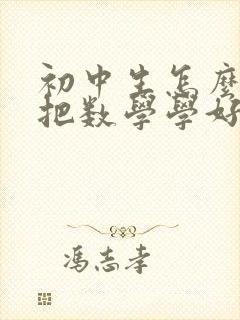 初中生怎麼
把数學學好
馮志孝